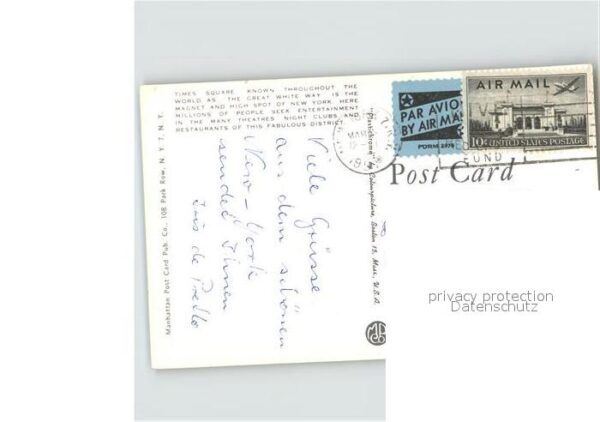 TIMES SQUARE KNOWN THROUGHOUT THE
WORLD AS THE GREAT WHITE WAY IS THE
MAGNET AND HIGH SPOT OF NEW YORK HERE
MILLIONS OF PEOPLE SEEK ENTERTAINMENT
IN THE MANY THEATRES NIGHT CLUBS AND
RESTAURANTS OF THIS FABULOUS DISTRICT.
Viele Grüsse
aus dem schönen
New-York
sendet Ihnen
de
Manhattan Post Card Pub. Co., 108 Park Row, N. Y. 7, N. Y.
"Plastichrome" by Colourpicture, Boston 15, Mass., U.S.A.
PAR AVION
BY AIR MAIL
FORM 2978
AIR MAIL
10¢ UNITED STATES POSTAGE
MAR
Post Card
privacy protection
Datenschutz